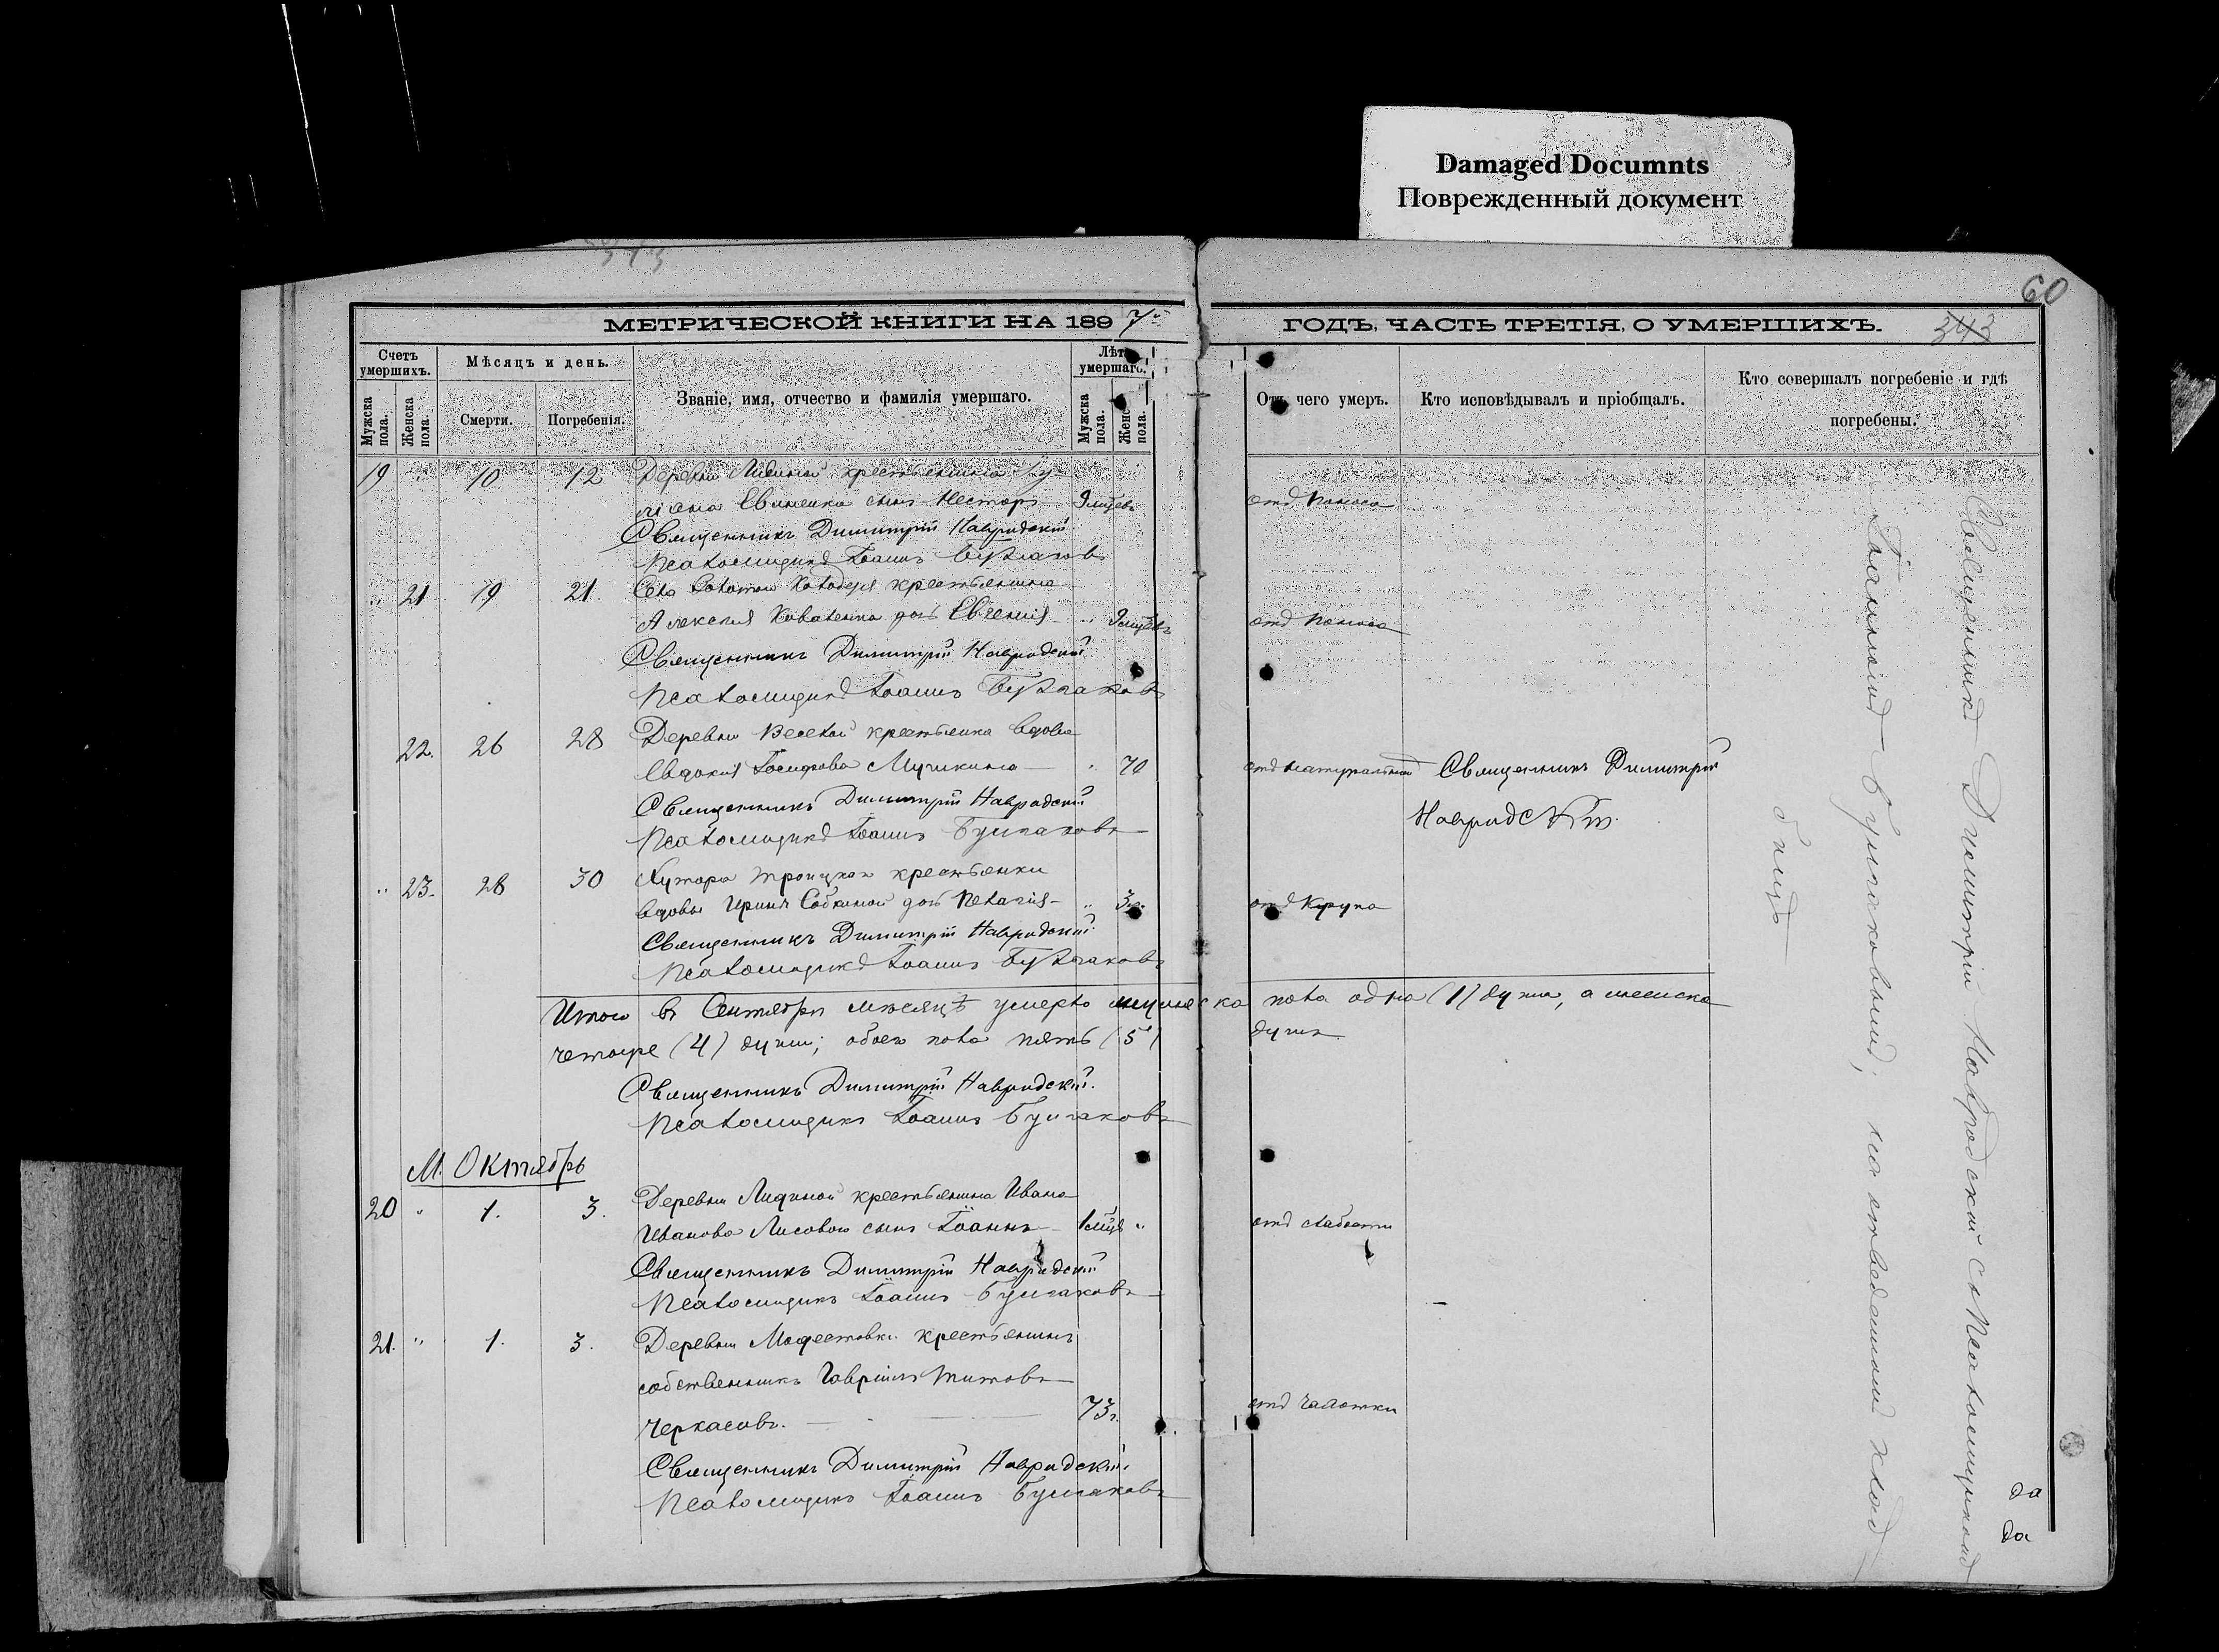 Damaged Documnts
Поврежденный документ
60
343
МЕТРИЧЕСКОЙ КНИГИ НА 1897 ГОДЪ, ЧАСТЬ ТРЕТІЯ, О УМЕРШИХЪ.
343
Счетъ умершихъ.
Мужска пола.
Женска пола.
Мѣсяцъ и день.
Смерти.
Погребенія.
Званіе, имя, отчество и фамилія умершаго.
Лѣта умершаго.
Мужска пола.
Женс пола.
Отъ чего умеръ.
Кто исповѣдывалъ и пріобщалъ.
Кто совершалъ погребеніе и гдѣ погребены.
19 " 10 12 Деревни крестьянина
сынъ Несторъ 9 мцевъ отъ поноса
Священникъ Димитрій Навродскій
Псаломщикъ Іоаннъ Булгаковъ
" 21 19 21. Села крестьянина
Алексія Коваленка дочь Евгенія " 9 мцевъ отъ поноса
Священникъ Димитрій Навродскій
Псаломщикъ Іоаннъ Булгаковъ
22. 26 28 Деревни Веселой крестьянка вдова
Евдокія Іосифова " 70 отъ натуральной Священникъ Димитрій
Навродскій.
Священникъ Димитрій Навродскій
Псаломщикъ Іоаннъ Булгаковъ
" 23. 28 30 Хутора Троицкаго крестьянки
вдовы Ирины Собкиной дочь Пелагія " 3 г. отъ крупа
Священникъ Димитрій Навродскій
Псаломщикъ Іоаннъ Булгаковъ
Итого въ Сентябрѣ мѣсяцѣ умерло мужеска пола одна (1) душа, а женска
четыре (4) души; обоего пола пять (5) душъ.
Священникъ Димитрій Навродскій.
Псаломщикъ Іоаннъ Булгаковъ
М. Октябрь
20 " 1. 3. Деревни крестьянина Ивана
Иванова Лисового сынъ Іоаннъ 1 мцъ " отъ слабости
Священникъ Димитрій Навродскій
Псаломщикъ Іоаннъ Булгаковъ
21. " 1. 3. Деревни Модестовки крестьянинъ
собственникъ Гавріилъ Титовъ
Черкасовъ. 73 г. отъ чахотки
Священникъ Димитрій Навродскій.
Псаломщикъ Іоаннъ Булгаковъ
Священникъ Димитрій Навродскій съ Псаломщикомъ
Іоанномъ Булгаковымъ, на отведенномъ клад
бищѣ
да
да